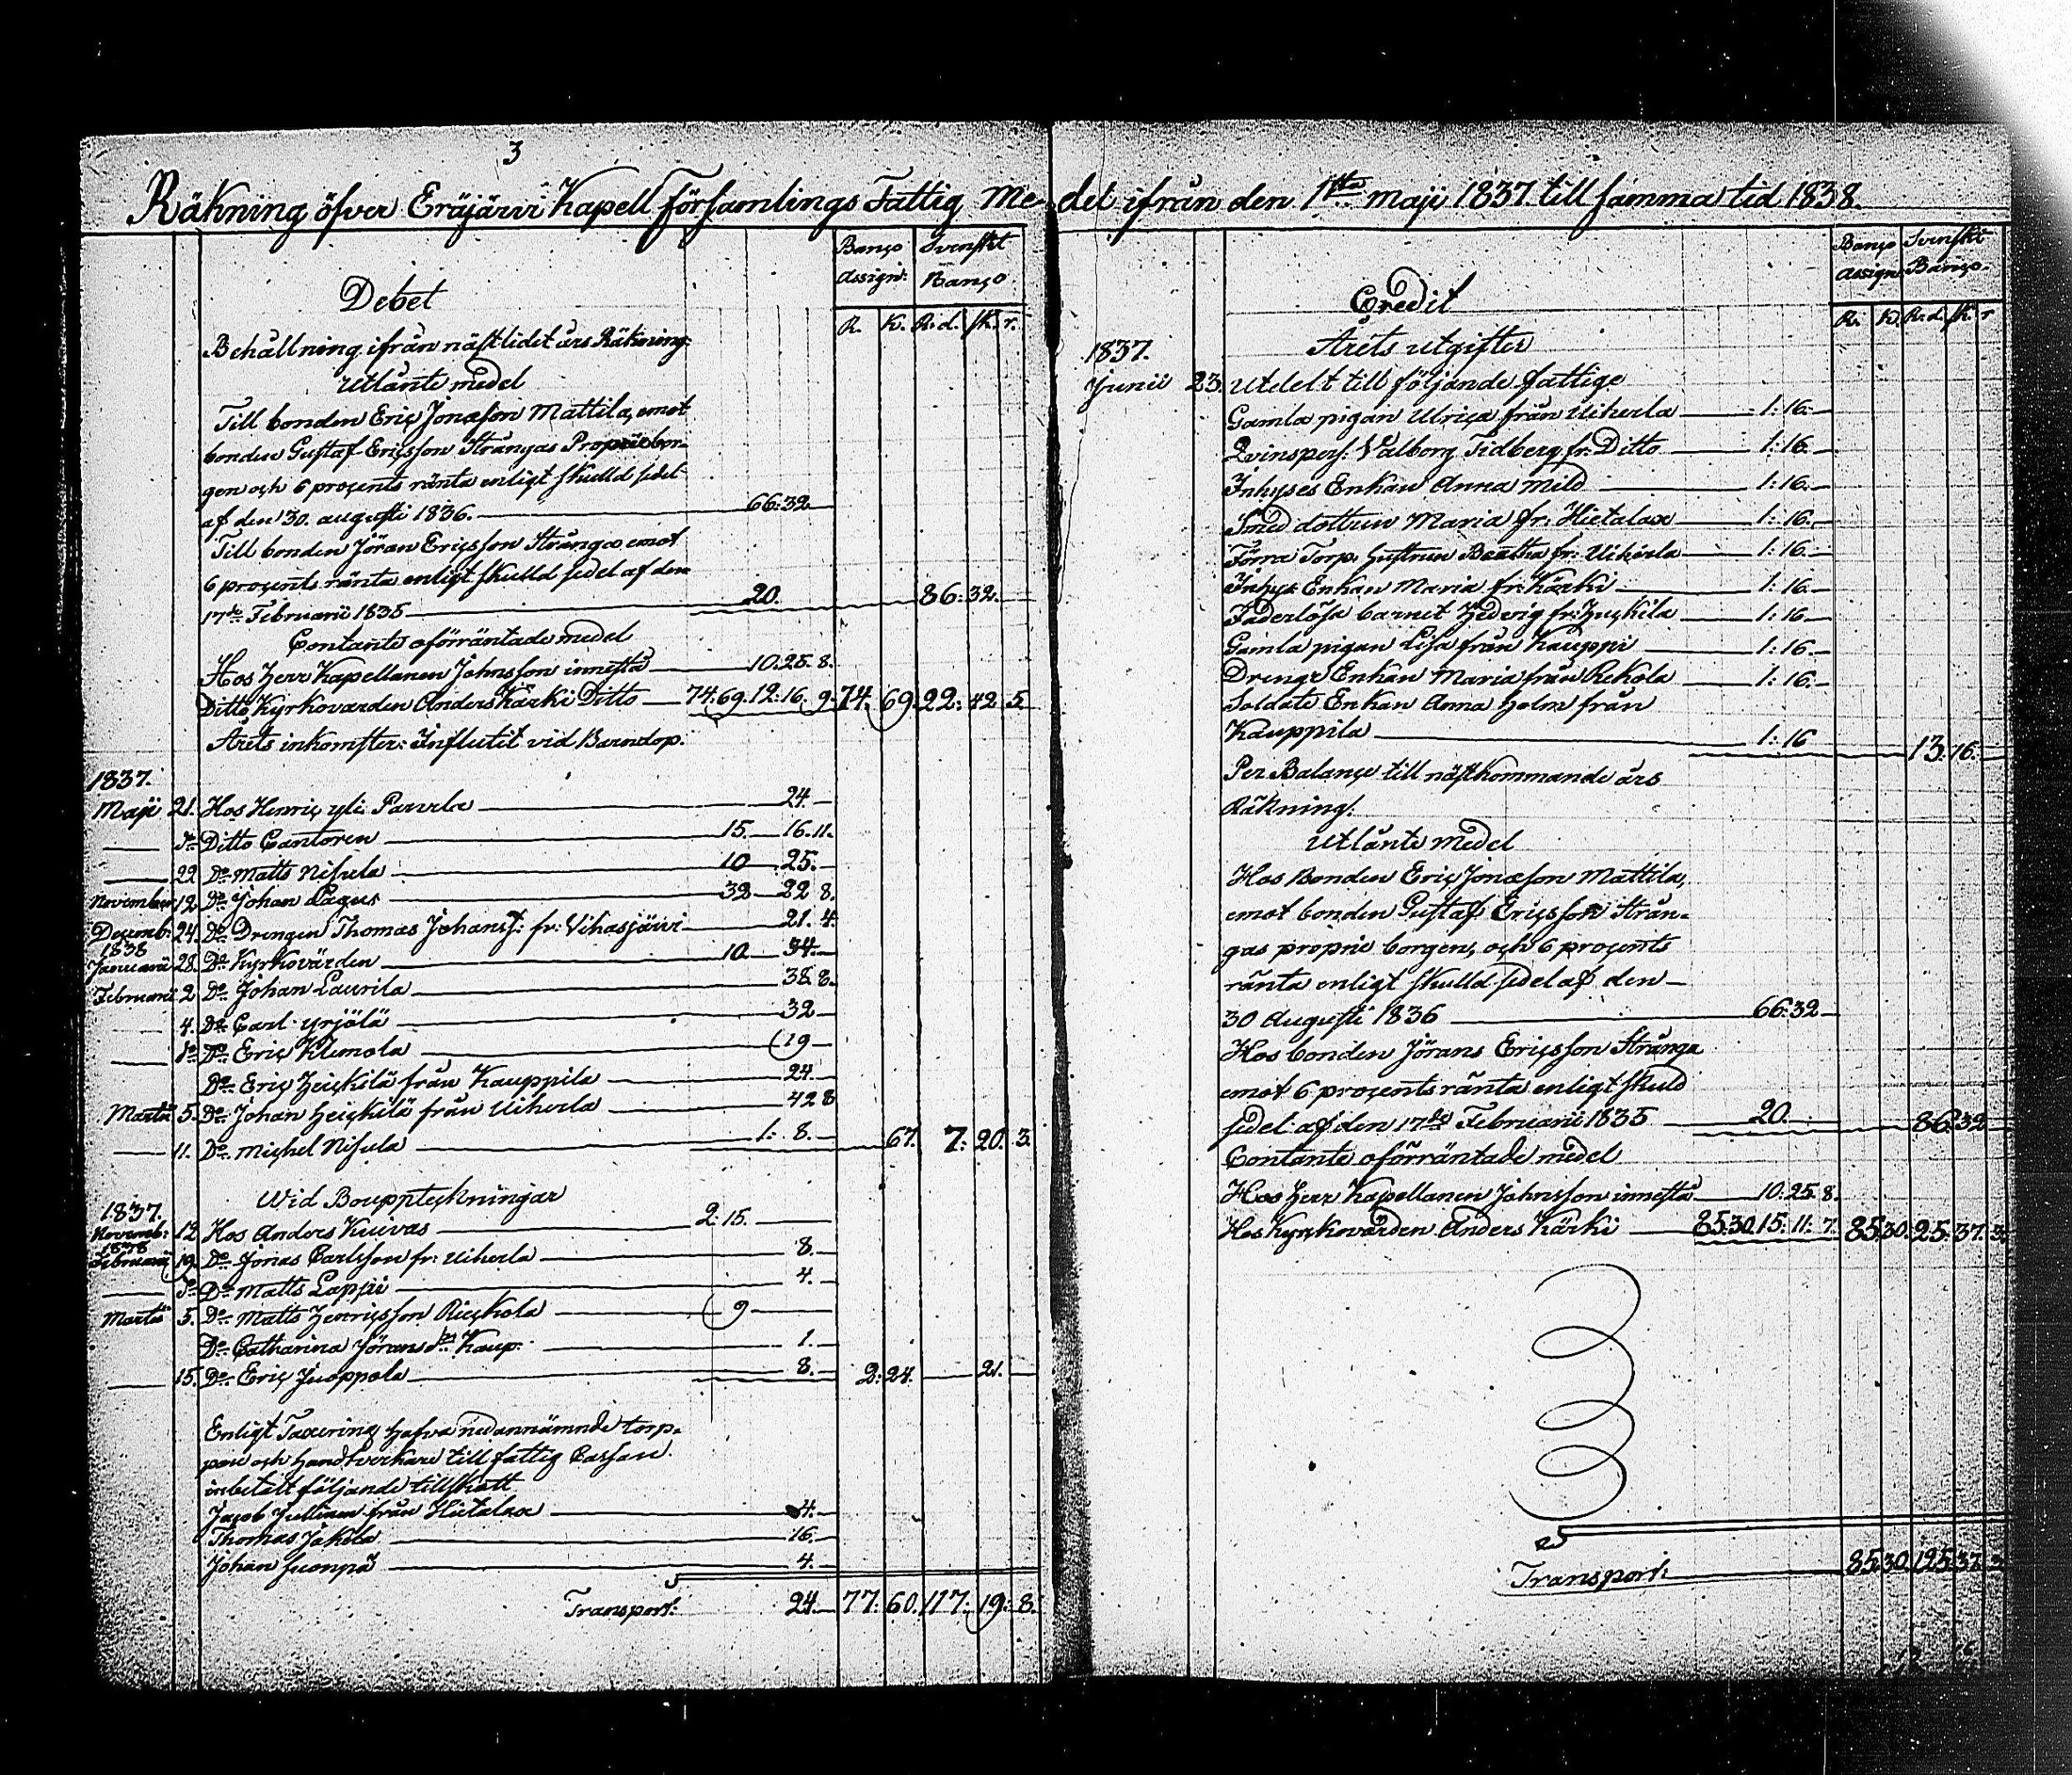 3
Räkning öfver Eräjärvi Kapell Församlings Fattig Me det ifrån den 1sta maji 1837 till samma tid 1838.
Banco Assign: Svenskt Banco
R. K. R:d. sk. r.
Debet
Behållning ifrån nästlidet års Räkning
Utlånte medel
Till bonden Eric Jonasson Mattila, emot
bonden Gustaf Ericsson Strångas Proprie bor-
gen och 6 procents ränta enligt skulld sedel
af den 30. augusti 1836. 66:32
Till bonden Jöran Ericsson Strånga emot
6 procents ränta enligt skulld sedel af den
17de Februarii 1835 20. 86:32.
Contante oförräntade medel
Hos Herr Kapellanen Johnsson innestå 10:25. 8.
Ditto Kyrkovärden Anders Kärki Ditto 74:69. 12:16. 9. 74. 69. 22: 42. 5.
Årets inkomster: Influtit vid Barndop.
1837.
Maji 21. Hos Henric yli Paavola 24.
Do Ditto Cantoren 15. 16. 11.
22 Do Matts Nisula 10 25.
November 12 Do Johan Lagus 32 22 8.
Decemb: 24. Do Drengen Thomas Johanss: fr: Vihasjärvi 21. 4.
1838
Januarii 28. Do Kyrkovärden 10 34.
Februarii 2 Do Johan Laurila 38 8.
4. Do Carl yrjölä 32
Do Do Eric Klemola 19
Do Eric Heickilä från Kauppila 24
Martii 5. Do Johan Heickilä från Uiherla 42 8
11. Do Michel Nisula 1: 8. 67. 7: 20. 3.
Wid Bouppteckningar
1837.
Novemb: 12 Hos Anders Kuivas 2: 15.
1838
Februarii 19. Do Jonas Carlsson fr: Uiherla 8.
Do Do Matts Lappi 4.
Martii 5. Do Matts Henricsson Rickola 9
Do Catharina Jörans dr Kaup. 1.
15. Do Eric Juoppola 8. 2: 24. 21.
Enligt Taxering hafva nedannämnde torp-
pare och handtverkare till fattig Cassan
inbetalt följande tillskott
Jacob Jullinen från Hietalax 4.
Thomas Jakola 16.
Johan Suonpä 4.
Transport: 24. 77: 60. 117: 19: 8.
Banco Assign: Svenskt Banço.
R. K. R:d. sk. r
Credit
1837. Årets utgifter
Junii 23. Utdelt till följande fattige
Gamla pigan Ulrica från Uiherla 1: 16.
Qvinspers: Valborg Tidberg fr: Ditto 1: 16.
Inhyses Enkan Anna Mild 1: 16.
Smed dottren Maria fr: Hietalax 1: 16.
Förra Torp: hustrun Beatha fr: Uiherla 1: 16.
Inhys Enkan Maria fr: Kärki 1: 16.
Faderlösa barnet Hedvig fr: Huckila 1: 16.
Gamla pigan Lisa från Kauppi 1: 16.
Drengs Enkan Maria från Rekola 1: 16.
Soldats Enkan Anna Holm från
Kauppila 1: 16 13: 16.
Per Balançe till nästkommande års
Räkning.
Utlånte medel
Hos Bonden Eric Jonasson Mattila,
emot bonden Gustaf Ericsson Strån-
gas proprie borgen, och 6 procents
ränta enligt skulld sedel af den
30 Augusti 1836 66:32
Hos bonden Jörans Ericsson Strånga
emot 6 procents ränta enligt skuld
sedel af den 17de Februarii 1835 20. 86:32
Contante oförräntade medel
Hos Herr Kapellanen Johnsson innestå 10:25. 8.
Hos Kyrkovärden Anders Kärki 85:30. 15: 11: 7. 85:30. 25: 37. 3.
Transport: 85:30. 125:37. 3